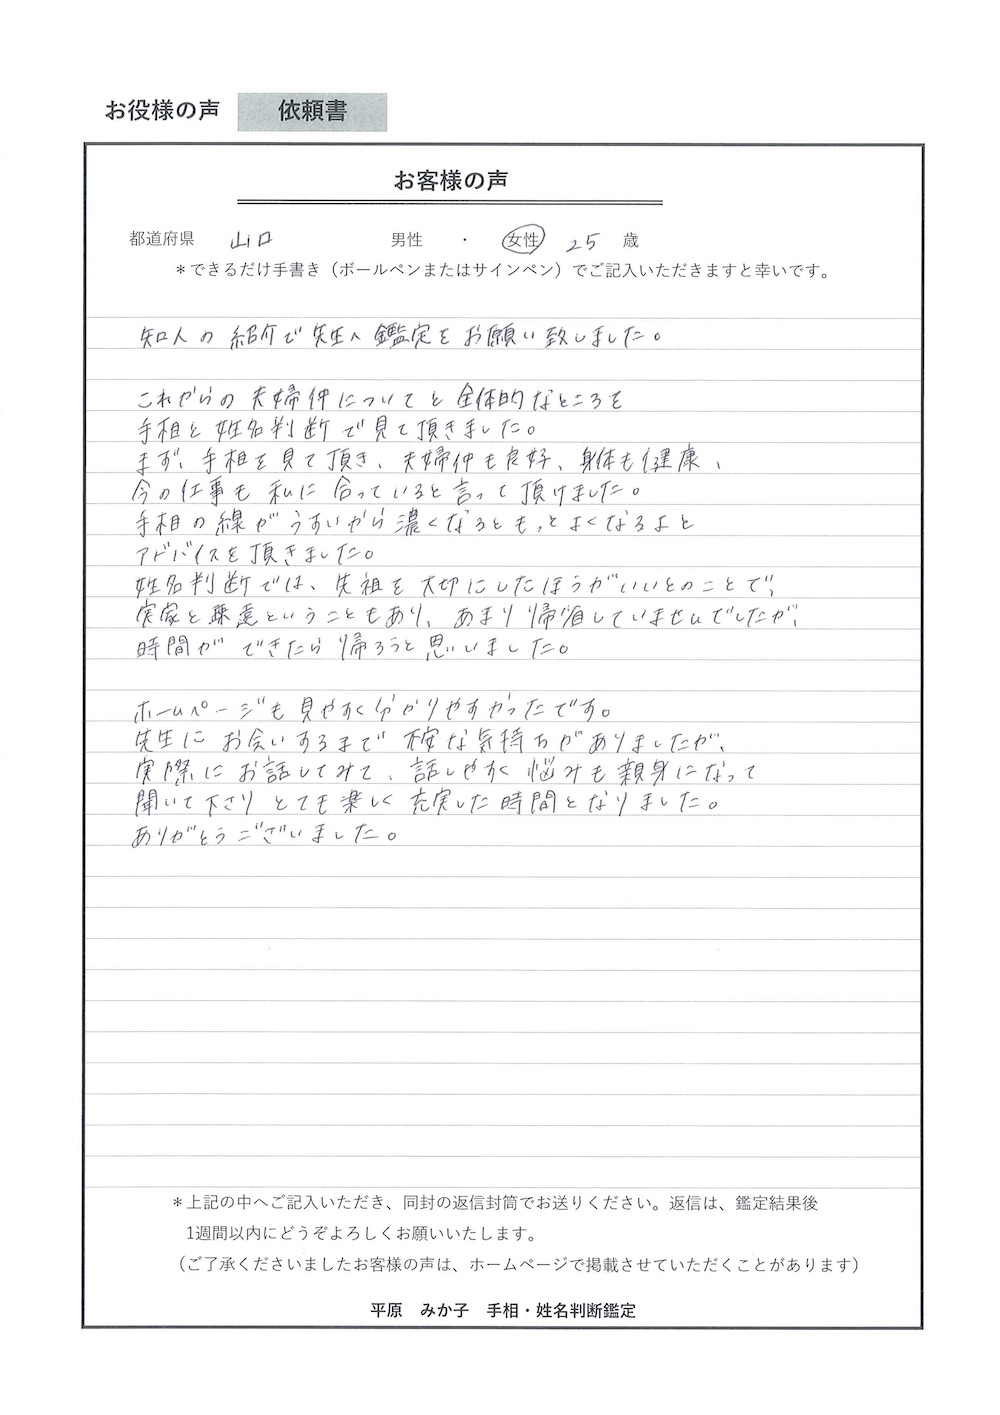 お役様の声 依頼書
お客様の声
都道府県 山口 男性 ・ 女性 25 歳
＊できるだけ手書き（ボールペンまたはサインペン）でご記入いただきますと幸いです。
知人の紹介で先生へ鑑定をお願い致しました。
これからの夫婦仲についてと全体的なところを
手相と姓名判断で見て頂きました。
まず、手相を見て頂き、夫婦仲も良好、身体も健康、
今の仕事も私に合っていると言って頂けました。
手相の線がうすいから濃くなるともっとよくなるよと
アドバイスを頂きました。
姓名判断では、先祖を大切にしたほうがいいとのことで、
実家と疎遠ということもあり、あまり帰省していませんでしたが、
時間ができたら帰ろうと思いました。
ホームページも見やすく分かりやすかったです。
先生にお会いするまで不安な気持ちがありましたが、
実際にお話してみて、話しやすく悩みも親身になって
聞いて下さりとても楽しく充実した時間となりました。
ありがとうございました。
＊上記の中へご記入いただき、同封の返信封筒でお送りください。返信は、鑑定結果後
1週間以内にどうぞよろしくお願いいたします。
（ご了承くださいましたお客様の声は、ホームページで掲載させていただくことがあります）
平原　みか子　手相・姓名判断鑑定